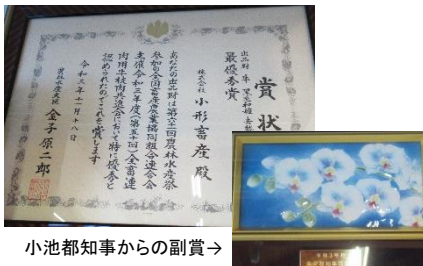 賞状
最優秀賞
株式会社 小形畜産 殿
あなたの出品財は第六十回農林水産祭
参加の全国畜産農業協同組合連合会
主催令和三年度(第五十回)全畜連
肉用牛枝肉共進会において特に優秀と
認められたのでこれを賞します
令和三年十一月十八日
農林水産大臣 金子原二郎
小池都知事からの副賞→